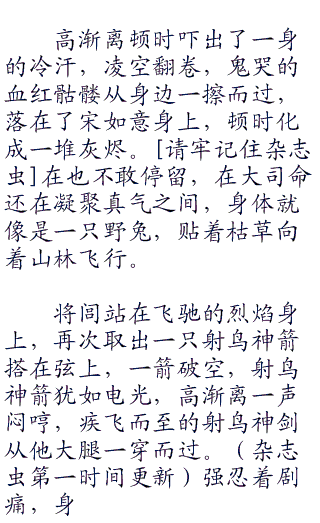 高渐离顿时吓出了一身
的冷汗，凌空翻卷，鬼哭的
血红骷髅从身边一擦而过，
落在了宋如意身上，顿时化
成一堆灰烬。[请牢记住杂志
虫]在也不敢停留，在大司命
还在凝聚真气之间，身体就
像是一只野兔，贴着枯草向
着山林飞行。
将闾站在飞驰的烈焰身
上，再次取出一只射鸟神箭
搭在弦上，一箭破空，射鸟
神箭犹如电光，高渐离一声
闷哼，疾飞而至的射鸟神剑
从他大腿一穿而过。（杂志
虫第一时间更新）强忍着剧
痛，身